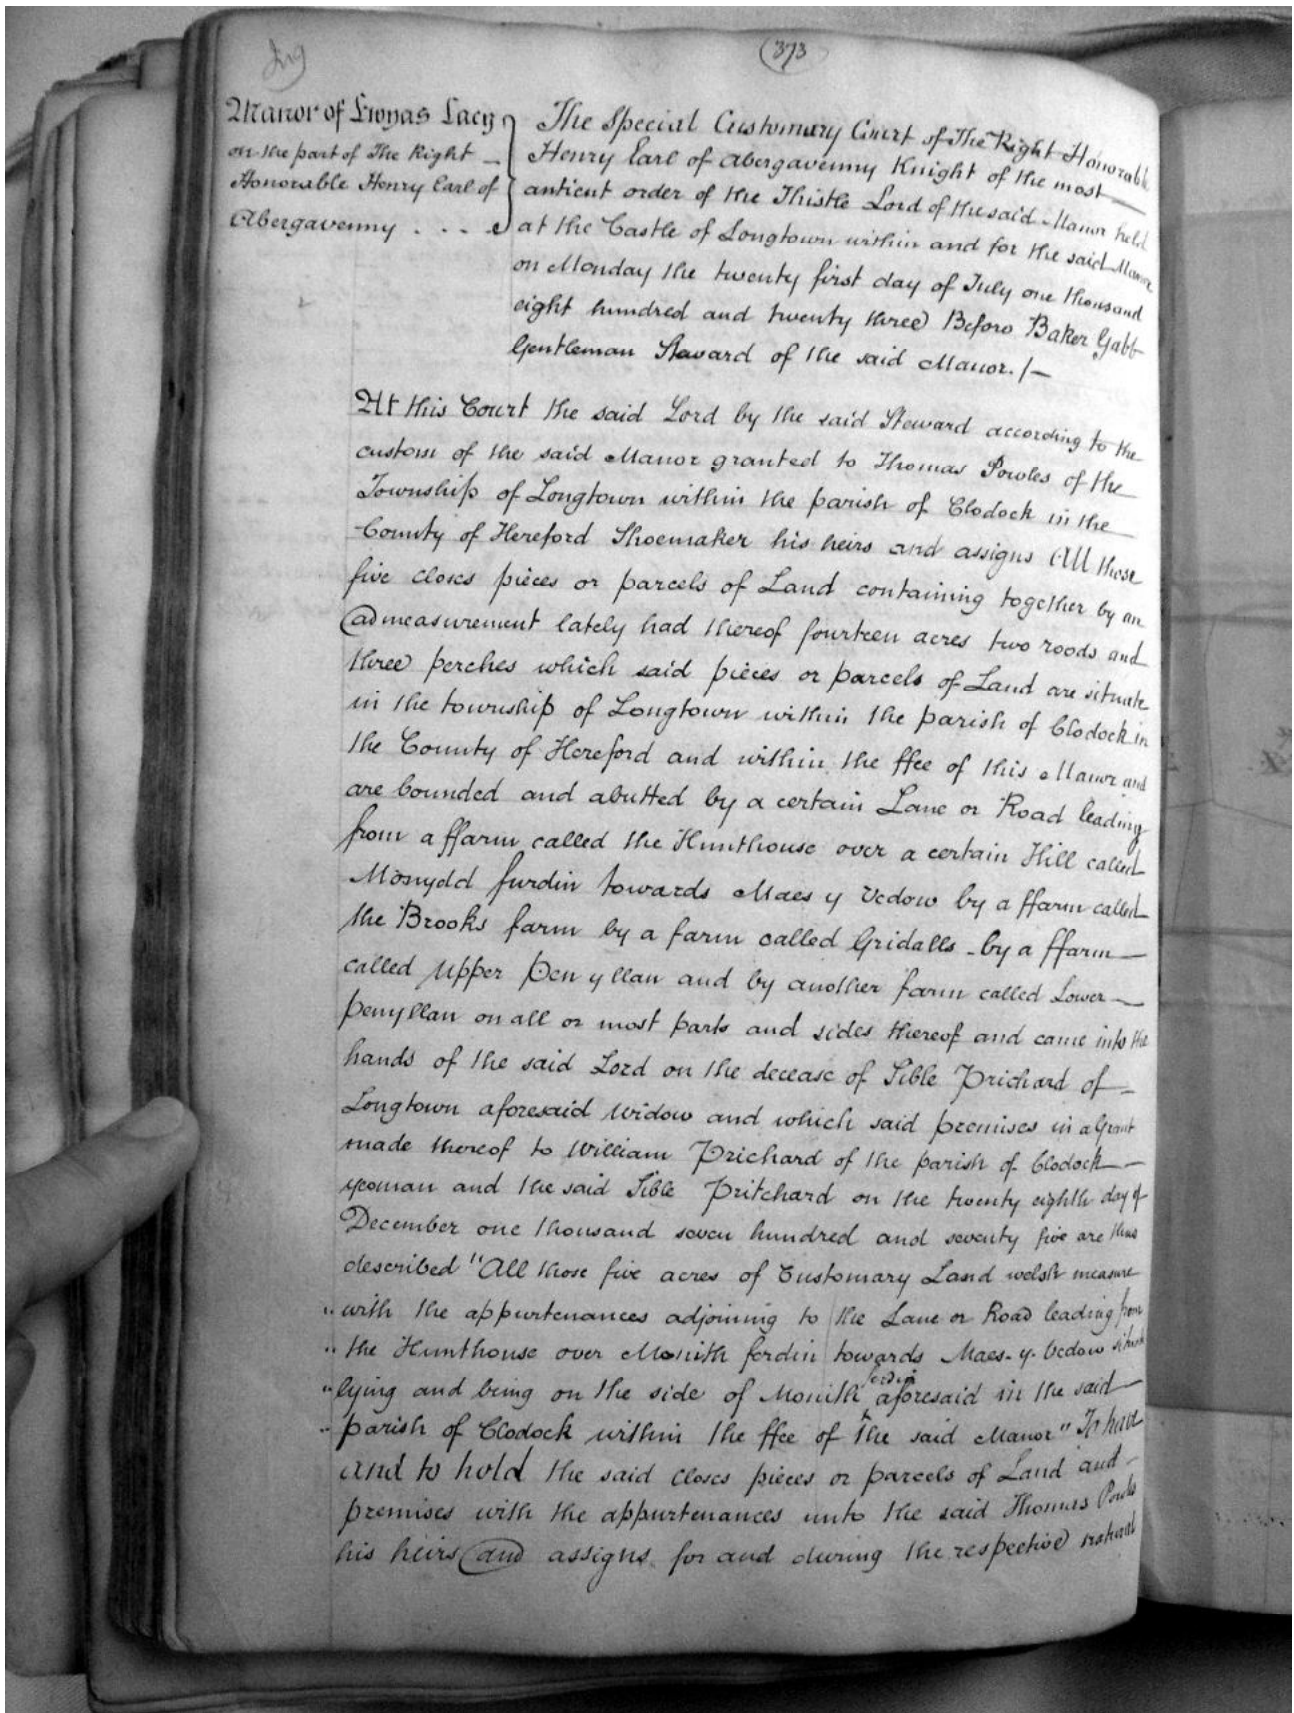 (373)
Manor of Ewyas Lacy
on the part of The Right
Honorable Henry Earl of
Abergavenny . . .
The Special Customary Court of The Right Honorable
Henry Earl of Abergavenny Knight of the most
antient order of the Thistle Lord of the said Manor held
at the Castle of Longtown within and for the said Manor
on Monday the twenty first day of July one thousand
eight hundred and twenty three Before Baker Gabb
Gentleman Steward of the said Manor. /-
At this Court the said Lord by the said Steward according to the
custom of the said Manor granted to Thomas Powles of the
Township of Longtown within the parish of Clodock in the
County of Hereford Shoemaker his heirs and assigns All those
five closes pieces or parcels of Land containing together by an
admeasurement lately had thereof fourteen acres two roods and
three perches which said pieces or parcels of Land are situate
in the township of Longtown within the parish of Clodock in
the County of Hereford and within the ffee of this Manor and
are bounded and abutted by a certain Lane or Road leading
from a ffarm called the Hunthouse over a certain Hill called
Monydd furdin towards Maes y Vedow by a ffarm called
the Brooks farm by a farm called Gridalls - by a ffarm
called Upper Pen y llan and by another farm called Lower
penyllan on all or most parts and sides thereof and came into the
hands of the said Lord on the decease of Sible Prichard of
Longtown aforesaid Widow and which said premises in a Grant
made thereof to William Prichard of the parish of Clodock
yeoman and the said Sible Pritchard on the twenty eighth day of
December one thousand seven hundred and seventy five are thus
described "All those five acres of Customary Land welsh measure
" with the appurtenances adjoining to the Lane or Road leading from
" the Hunthouse over Monith ferdin towards Maes-y-bedow situate
" lying and being on the side of Monith ferdin aforesaid in the said
" parish of Clodock within the ffee of the said Manor" To have
and to hold the said closes pieces or parcels of Land and
premises with the appurtenances unto the said Thomas Powles
his heirs and assigns for and during the respective natural